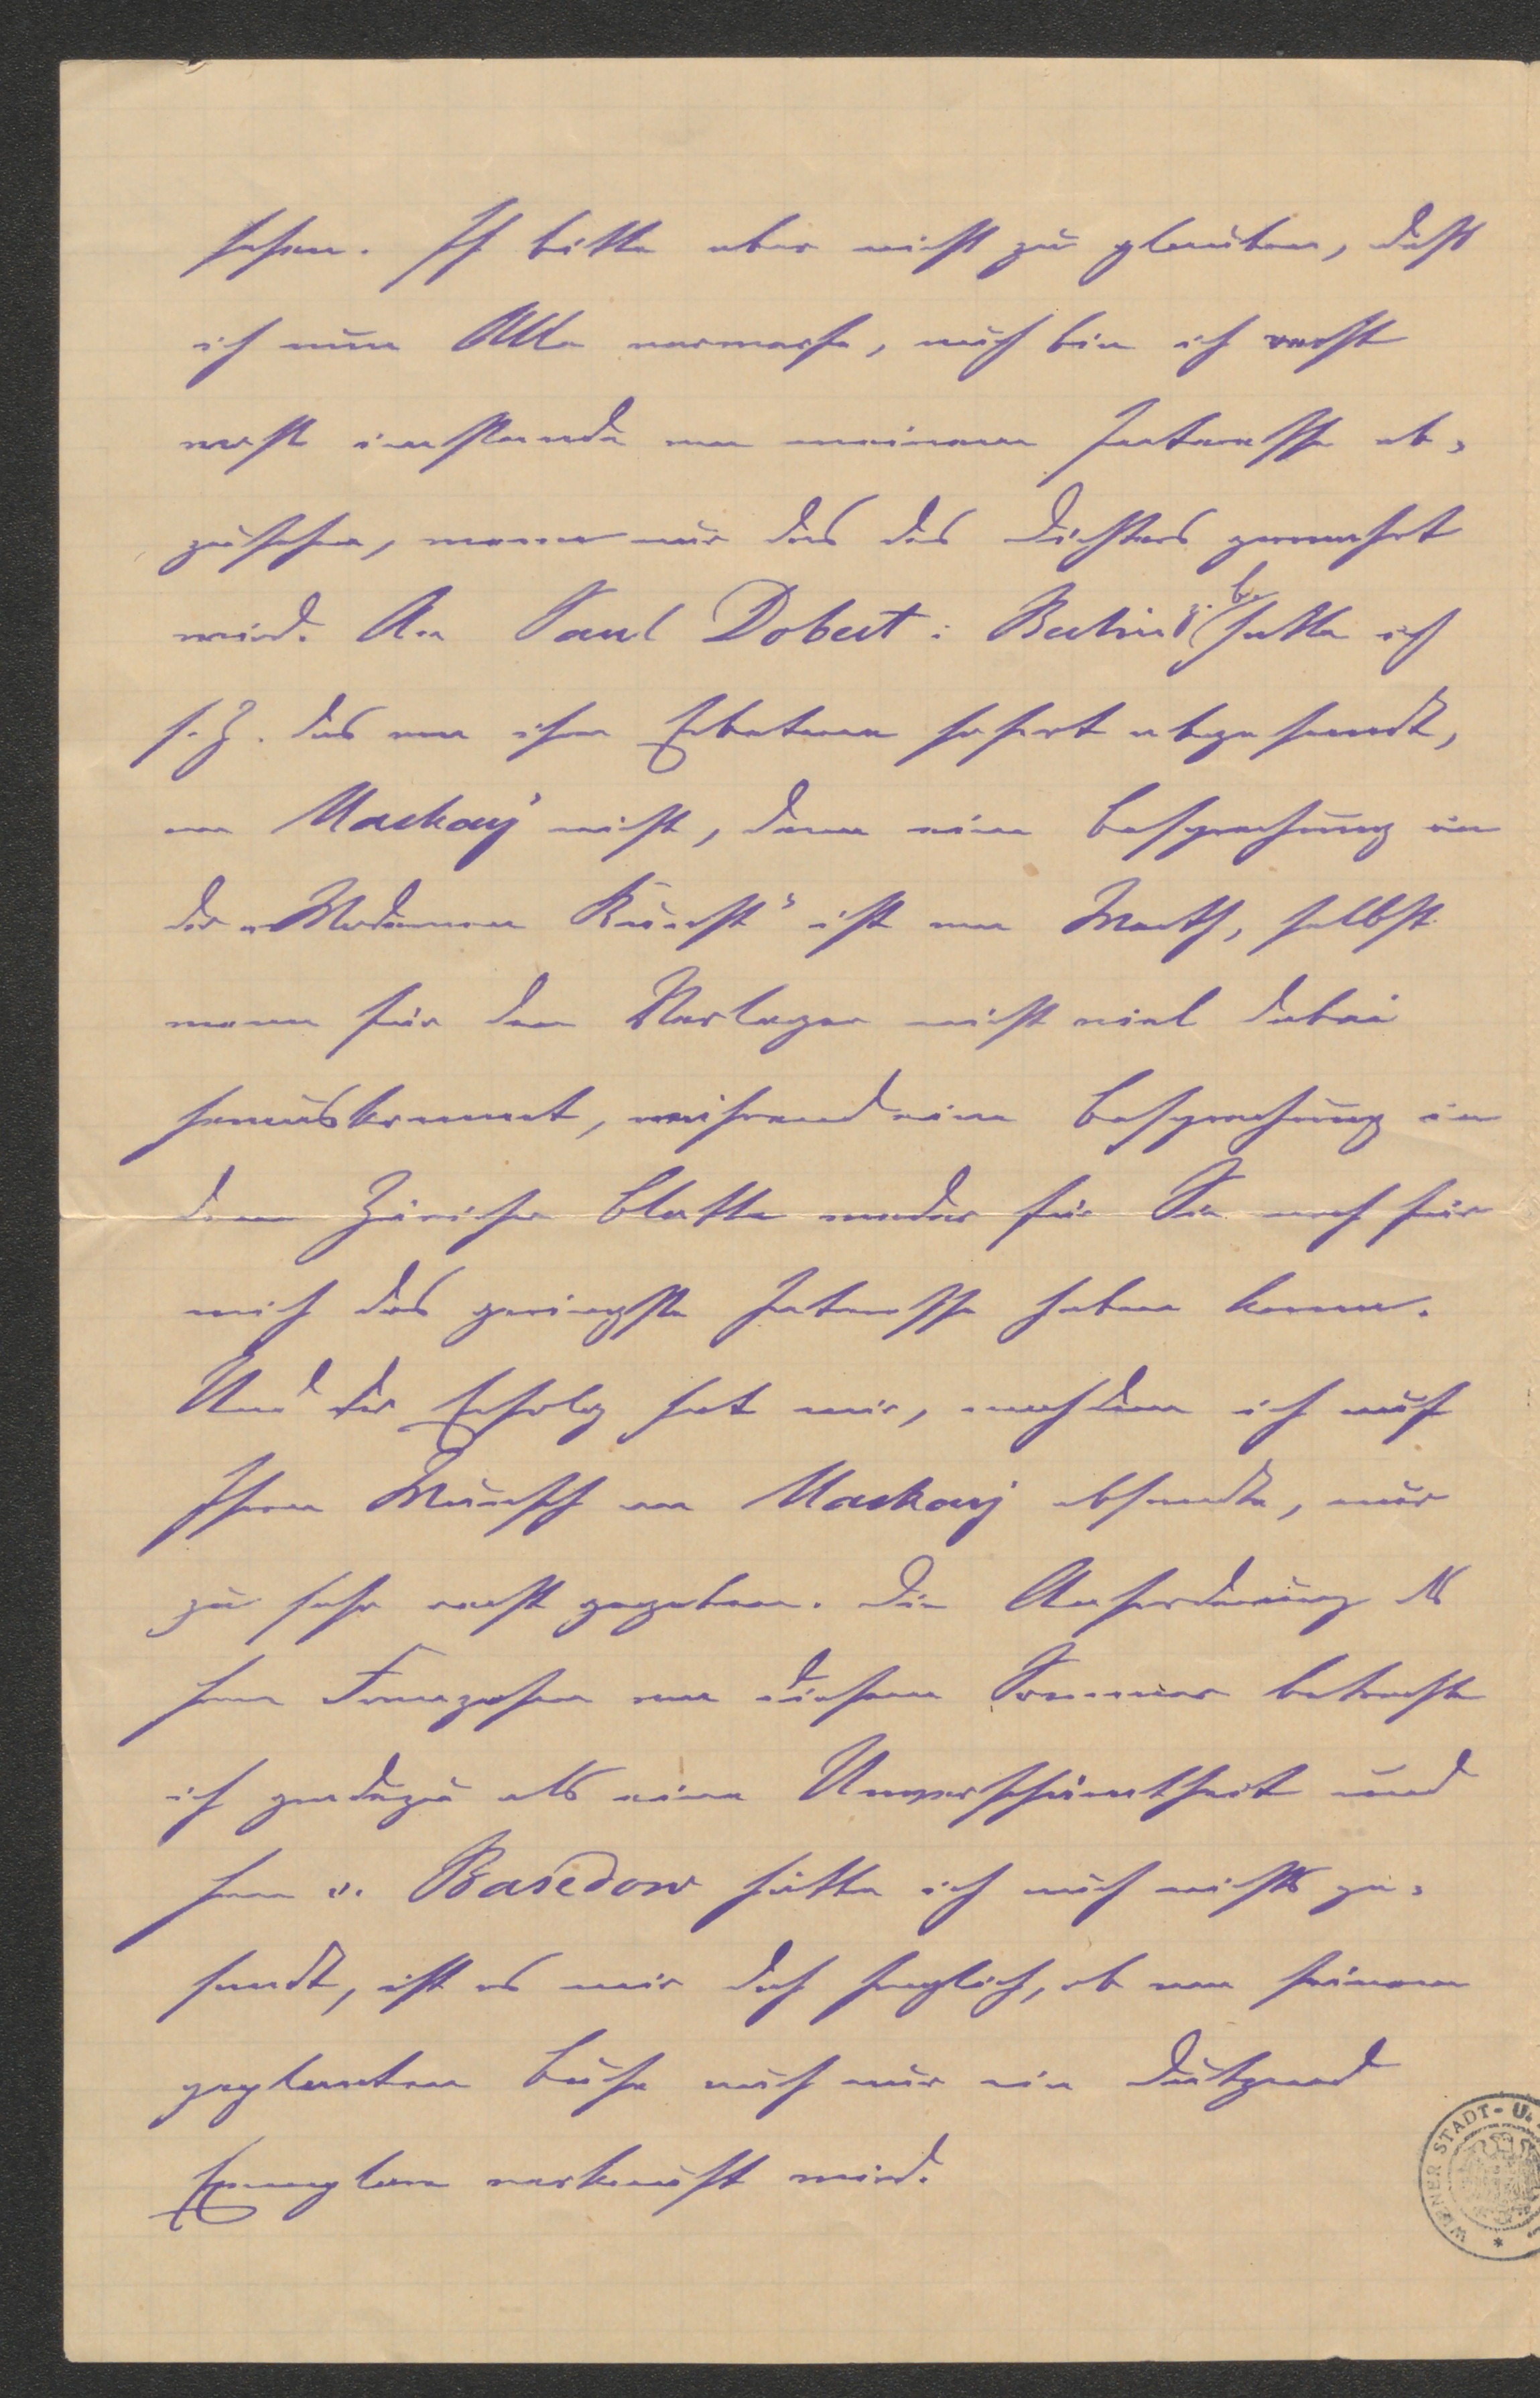 sehen. Ich bitte aber nicht zu glauben, daß
ich nun Alle verwerfe, auch bin ich recht
wohl imstande von meinem Interesse ab-
zusehen, wenn nur das des Dichters gewahrt
wird. An Paul Dobert: Berlin hatte ich
s. Z. das von ihm Erbetene sofort abgesandt,
an Mackay nicht, denn eine Besprechung in
der „Modernen Kunst“ ist von Werth, selbst
wenn für den Verleger nicht viel dabei
herauskommt, während eine Besprechung in
dem Züricher Blatte weder für Sie noch für
mich das geringste Interesse haben kann.
Und der Erfolg hat mir, nachdem ich auf
Ihren Wunsch an Mackay absandte, nur
zu sehr recht gegeben. Die Anforderung des
Herrn Franzosen von diesem Sommer betrachte
ich geradezu als eine Unverschämtheit und
Herrn v. Basedow hätte ich auch nichts ge-
sandt, ist es mir doch fraglich, ob von seinem
geplanten Buche auch nur ein Dutzend
Exemplare verkauft wird.
WIENER STADT- U.